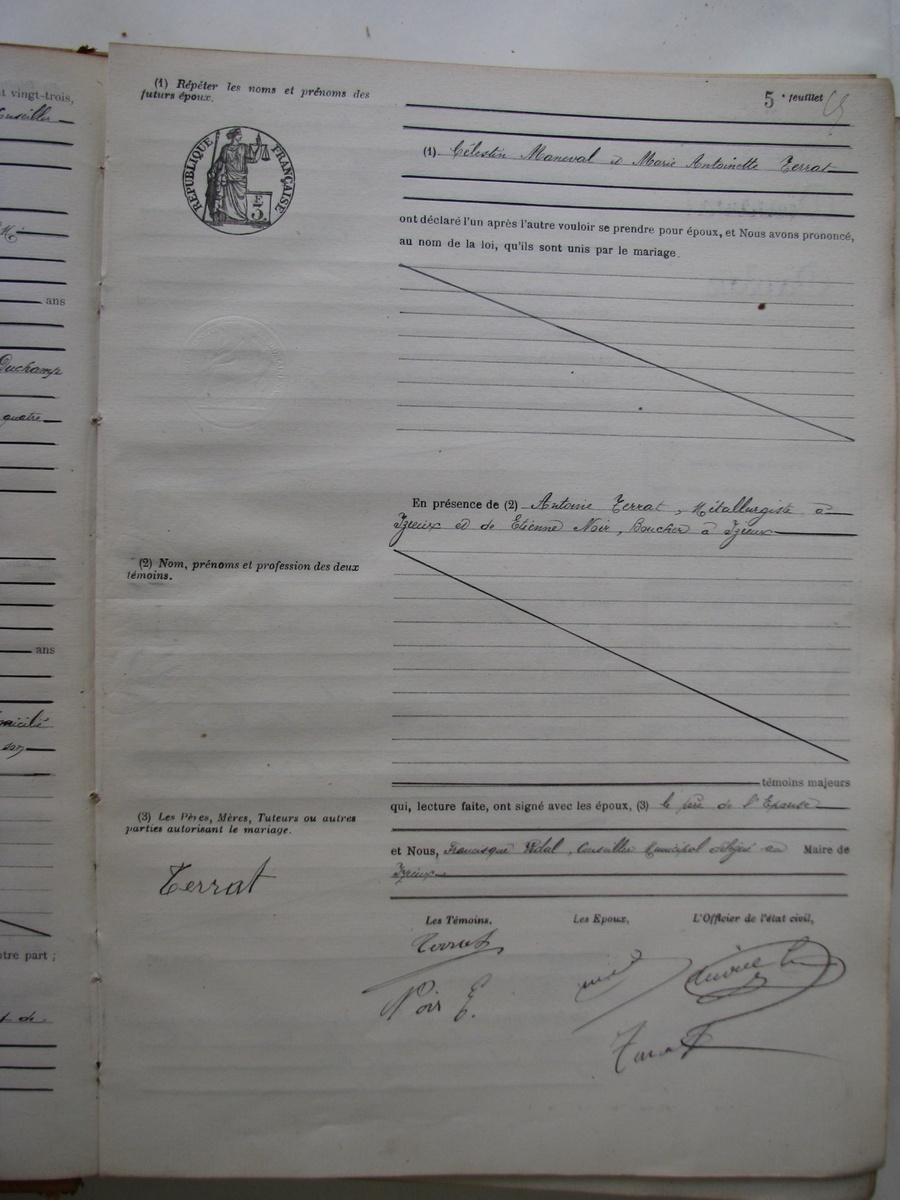 t vingt-trois,
Conseiller
ans
Duchamp
quatre
ans
son
tre part ;
t de
(1) Répéter les noms et prénoms des
futurs époux.
5e feuillet
RÉPUBLIQUE FRANÇAISE
E
3
(1) Célestin Maneval et Marie Antoinette Terrat
ont déclaré l'un après l'autre vouloir se prendre pour époux, et Nous avons prononcé,
au nom de la loi, qu'ils sont unis par le mariage.
En présence de (2) Antoine Terrat, Métallurgiste à
Izieux et de Etienne Noir, Boucher à Izieux
(2) Nom, prénoms et profession des deux
témoins.
témoins majeurs
qui, lecture faite, ont signé avec les époux, (3) le père de l'Epouse
(3) Les Pères, Mères, Tuteurs ou autres
parties autorisant le mariage.
et Nous, Francisque Vidal, Conseiller Municipal délégué au Maire de
Izieux
Terrat
Les Témoins,
Les Epoux,
L'Officier de l'état civil,
Terrat
Noir E.
Terrat